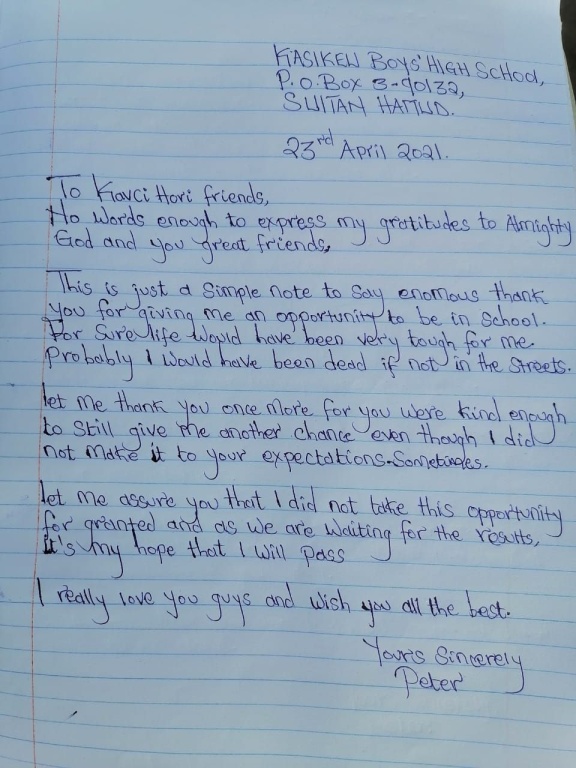 KASIKEU BOYS' HIGH SCHOOL,
P.O.BOX 3-90132,
SULTAN HAMUD.
23rd April 2021.
To Kavci Hori friends,
No words enough to express my gratitudes to Almighty
God and you great friends,
This is just a simple note to say enomous thank
you for giving me an opportunity to be in school.
For sure life would have been very tough for me
Probably I would have been dead if not in the streets.
let me thank you once more for you were kind enough
to still give me another chance even though I did
not make it to your expectations sometimes.
let me assure you that I did not take this opportunity
for granted and as we are waiting for the results,
it's my hope that I will pass
I really love you guys and wish you all the best.
Yours Sincerely
Peter